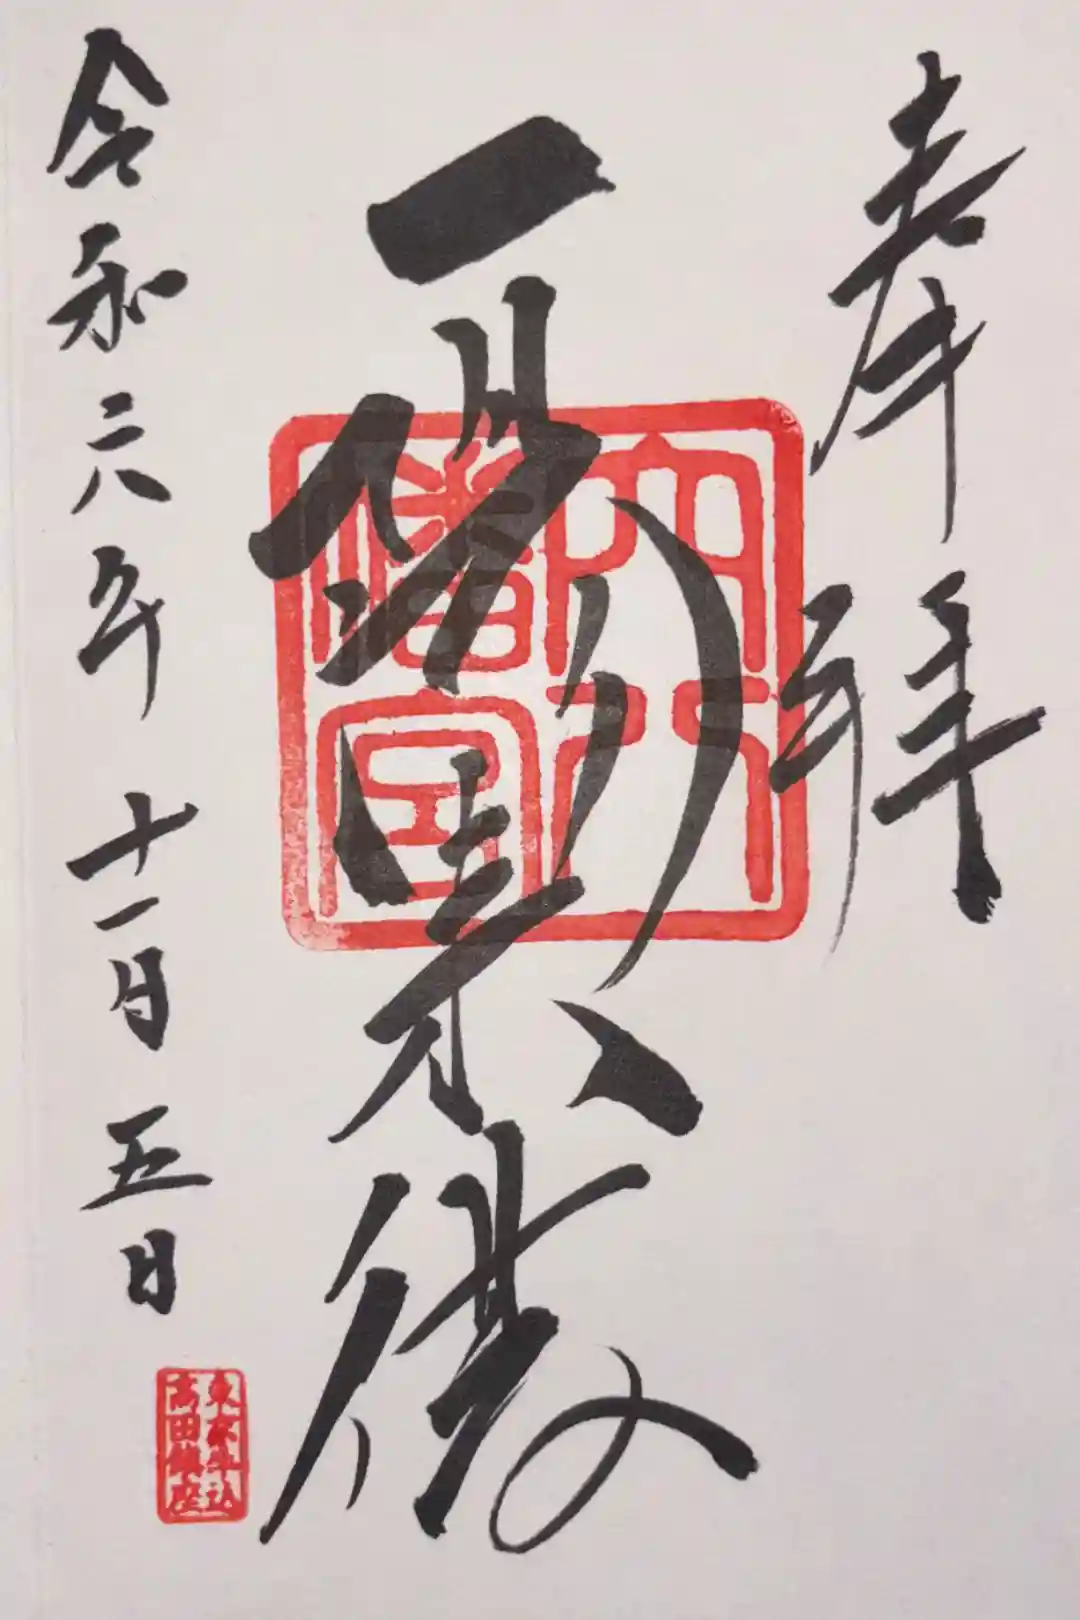 奉拝
一陽来復
穴八
幡宮
令和六年十一月五日
東京牛込
高田鎮座